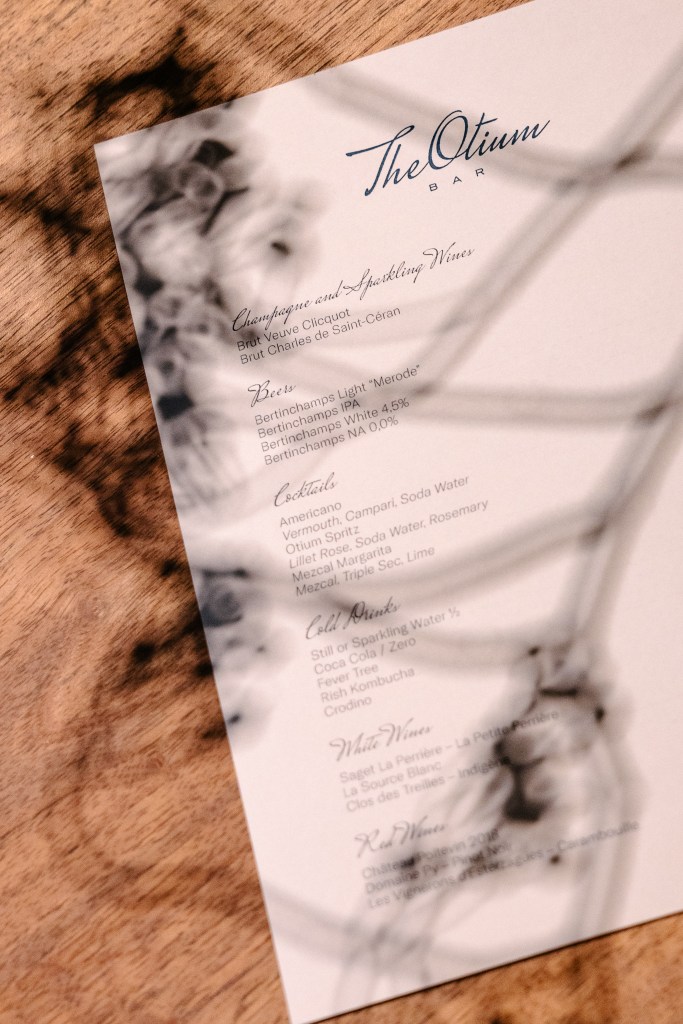 The Otium
BAR
Champagne and Sparkling Wines
Brut Veuve Clicquot
Brut Charles de Saint-Céran
Beers
Bertinchamps Light "Merode"
Bertinchamps IPA
Bertinchamps White 4,5%
Bertinchamps NA 0,0%
Cocktails
Americano
Vermouth, Campari, Soda Water
Otium Spritz
Lillet Rose, Soda Water, Rosemary
Mezcal Margarita
Mezcal, Triple Sec, Lime
Cold Drinks
Still or Sparkling Water ½
Coca Cola / Zero
Fever Tree
Rish Kombucha
Crodino
White Wines
Saget La Perrière – La Petite Perrière
La Source Blanc
Clos des Treilles – Indigène
Red Wines
Château Poitevin
Domaine Py – Pinot Noir
Les Vignerons d'Estézargues – Carambouille